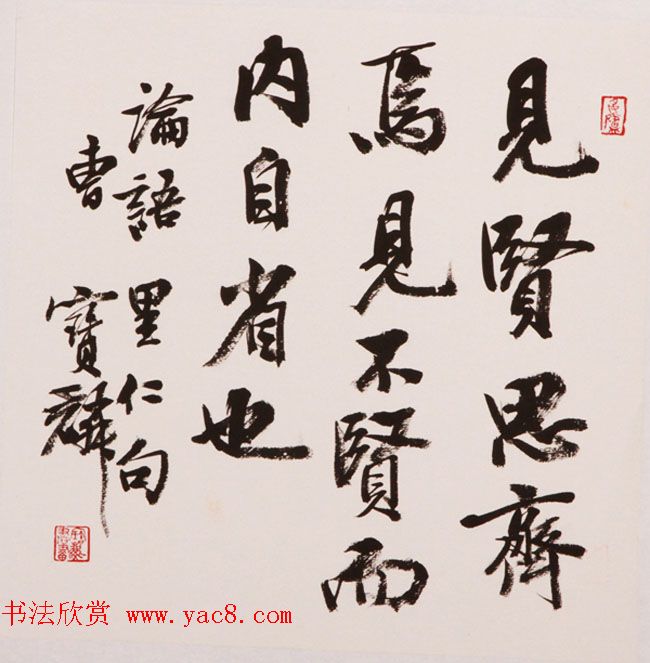 見賢思齊
焉見不賢而
内自省也
論語里仁句
曹寶麟
书法欣赏 www.yac8.com